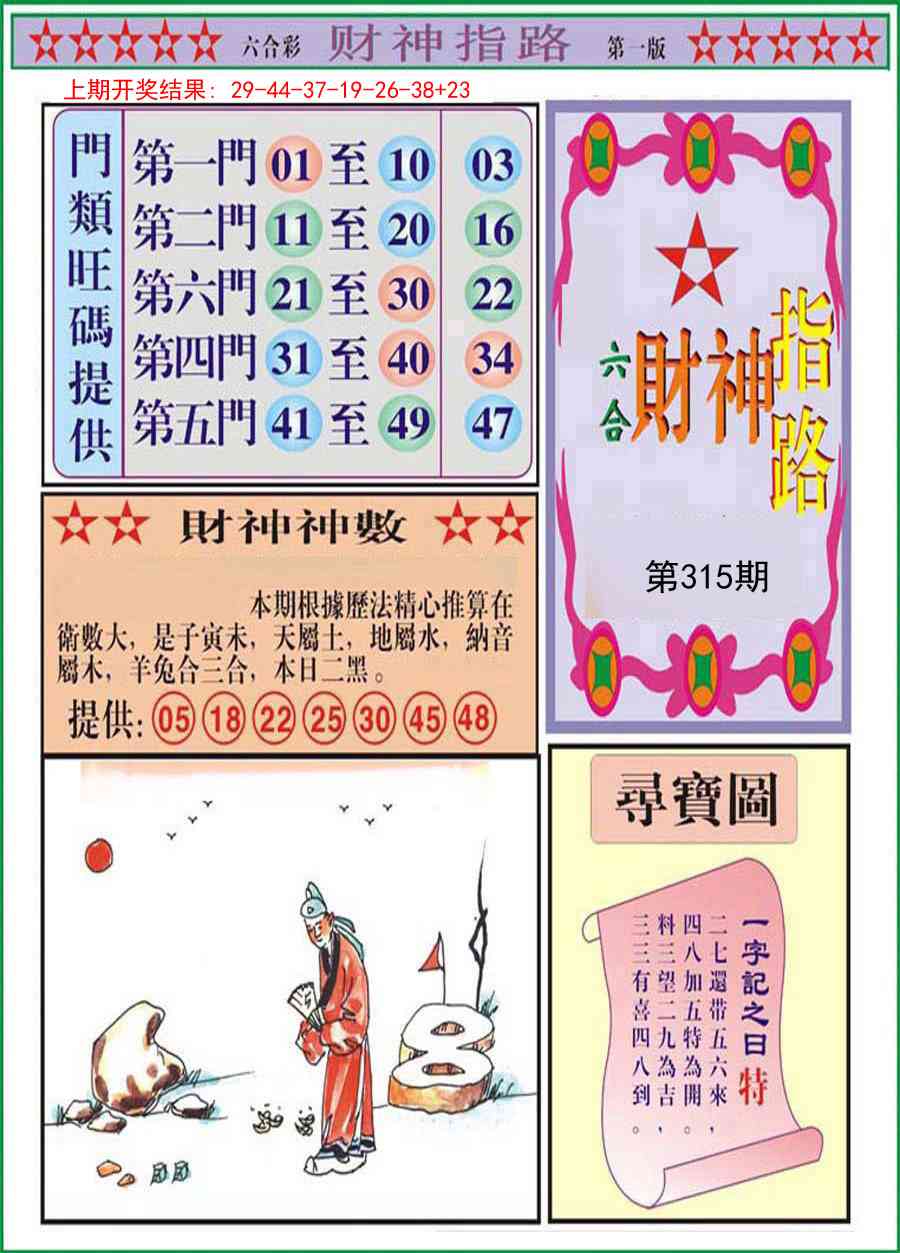 六合彩 财神指路 第一版
上期开奖结果：29-44-37-19-26-38+23
門類旺碼提供
第一門 01 至 10 03
第二門 11 至 20 16
第六門 21 至 30 22
第四門 31 至 40 34
第五門 41 至 49 47
六合
財神
指路
第315期
財神神數
本期根據歷法精心推算在
衛數大，是子寅未，天屬土，地屬水，納音
屬木，羊兔合三合，本日二黑。
提供: 05 18 22 25 30 45 48
尋寶圖
一字記之曰特
二七還带五六來，
四八加五特為開。
料三望二九為吉，
三三有喜四八到。